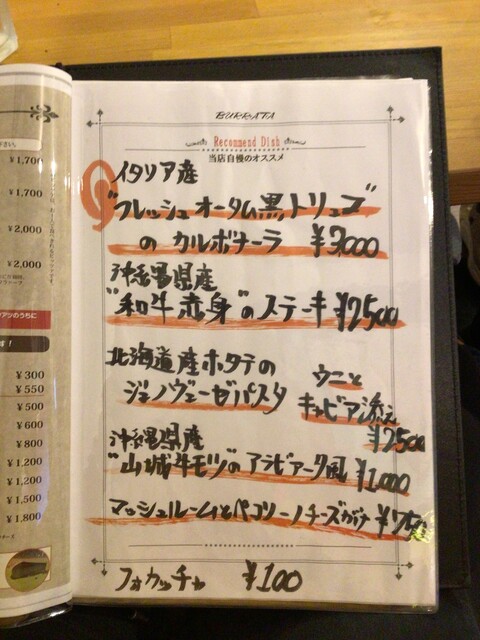 BURRATA
Recommend Dish
当店自慢のオススメ
イタリア産
"フレッシュオータム黒トリュフ"
の カルボナーラ ¥3,000
沖縄県産
"和牛赤身"のステーキ ¥2500
北海道産ホタテの ウニと
ジェノヴェーゼパスタ キャビア添え
¥2500
沖縄県産
"山城牛モツ"のアラビアータ風 ¥1,000
マッシュルームとペコリーノチーズがけ ¥750
フォカッチャ ¥100
¥1,700
¥1,700
¥2,000
¥2,000
¥300
¥550
¥500
¥600
¥800
¥1,200
¥1,200
¥1,500
¥1,800